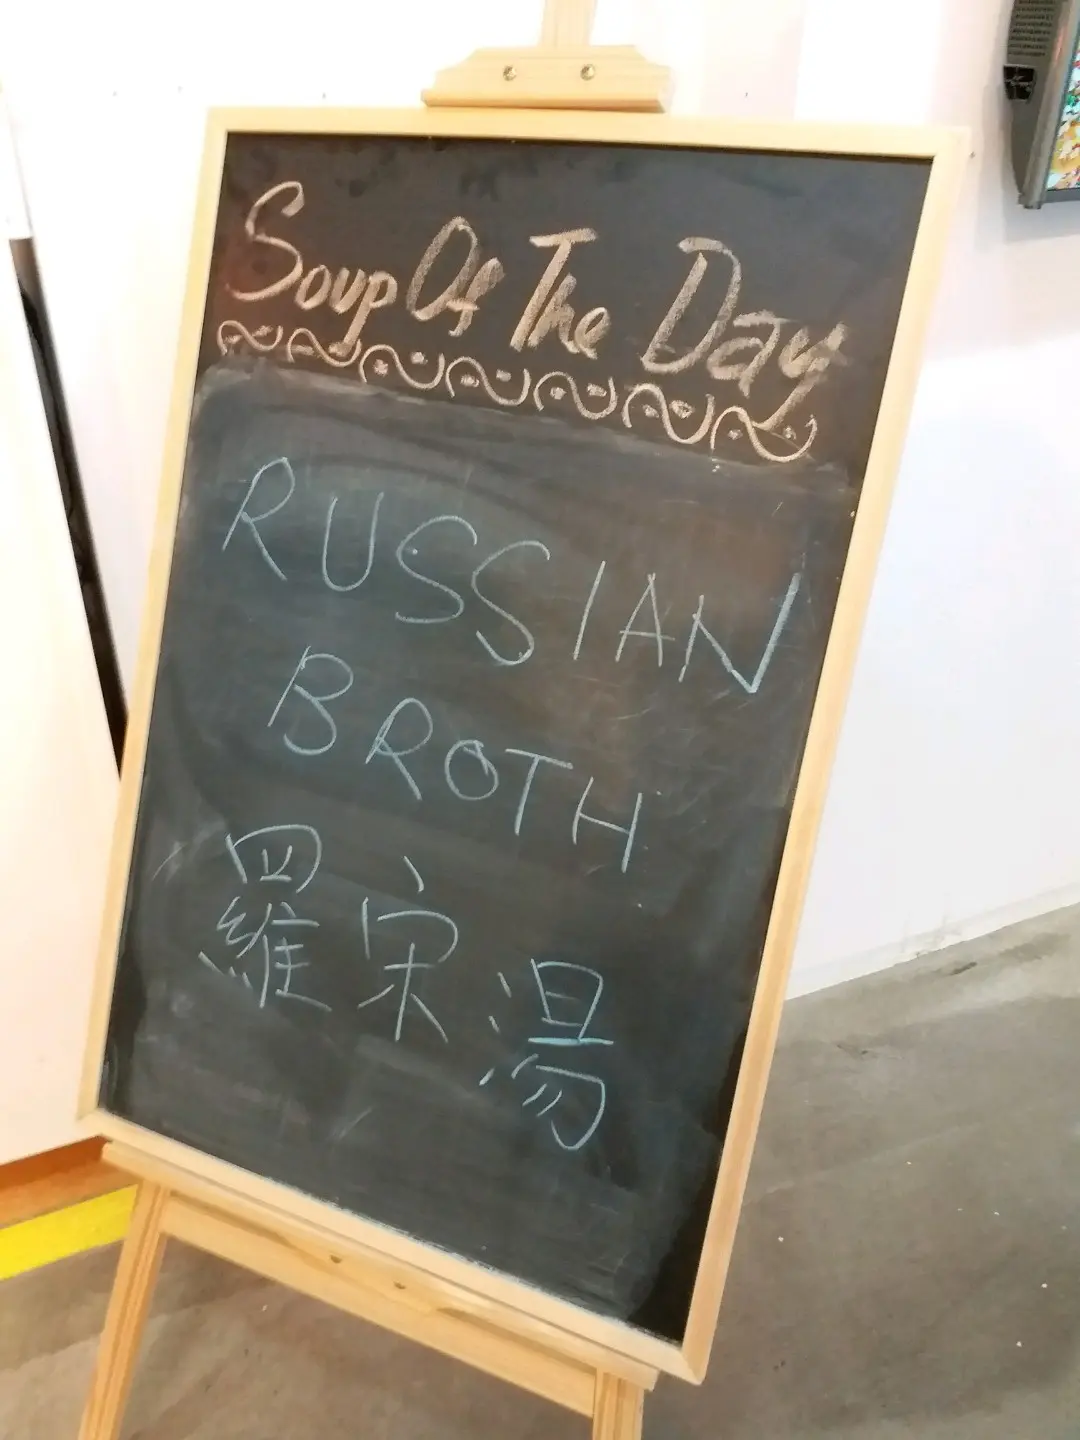 Soup Of The Day
RUSSIAN
BROTH
羅宋湯